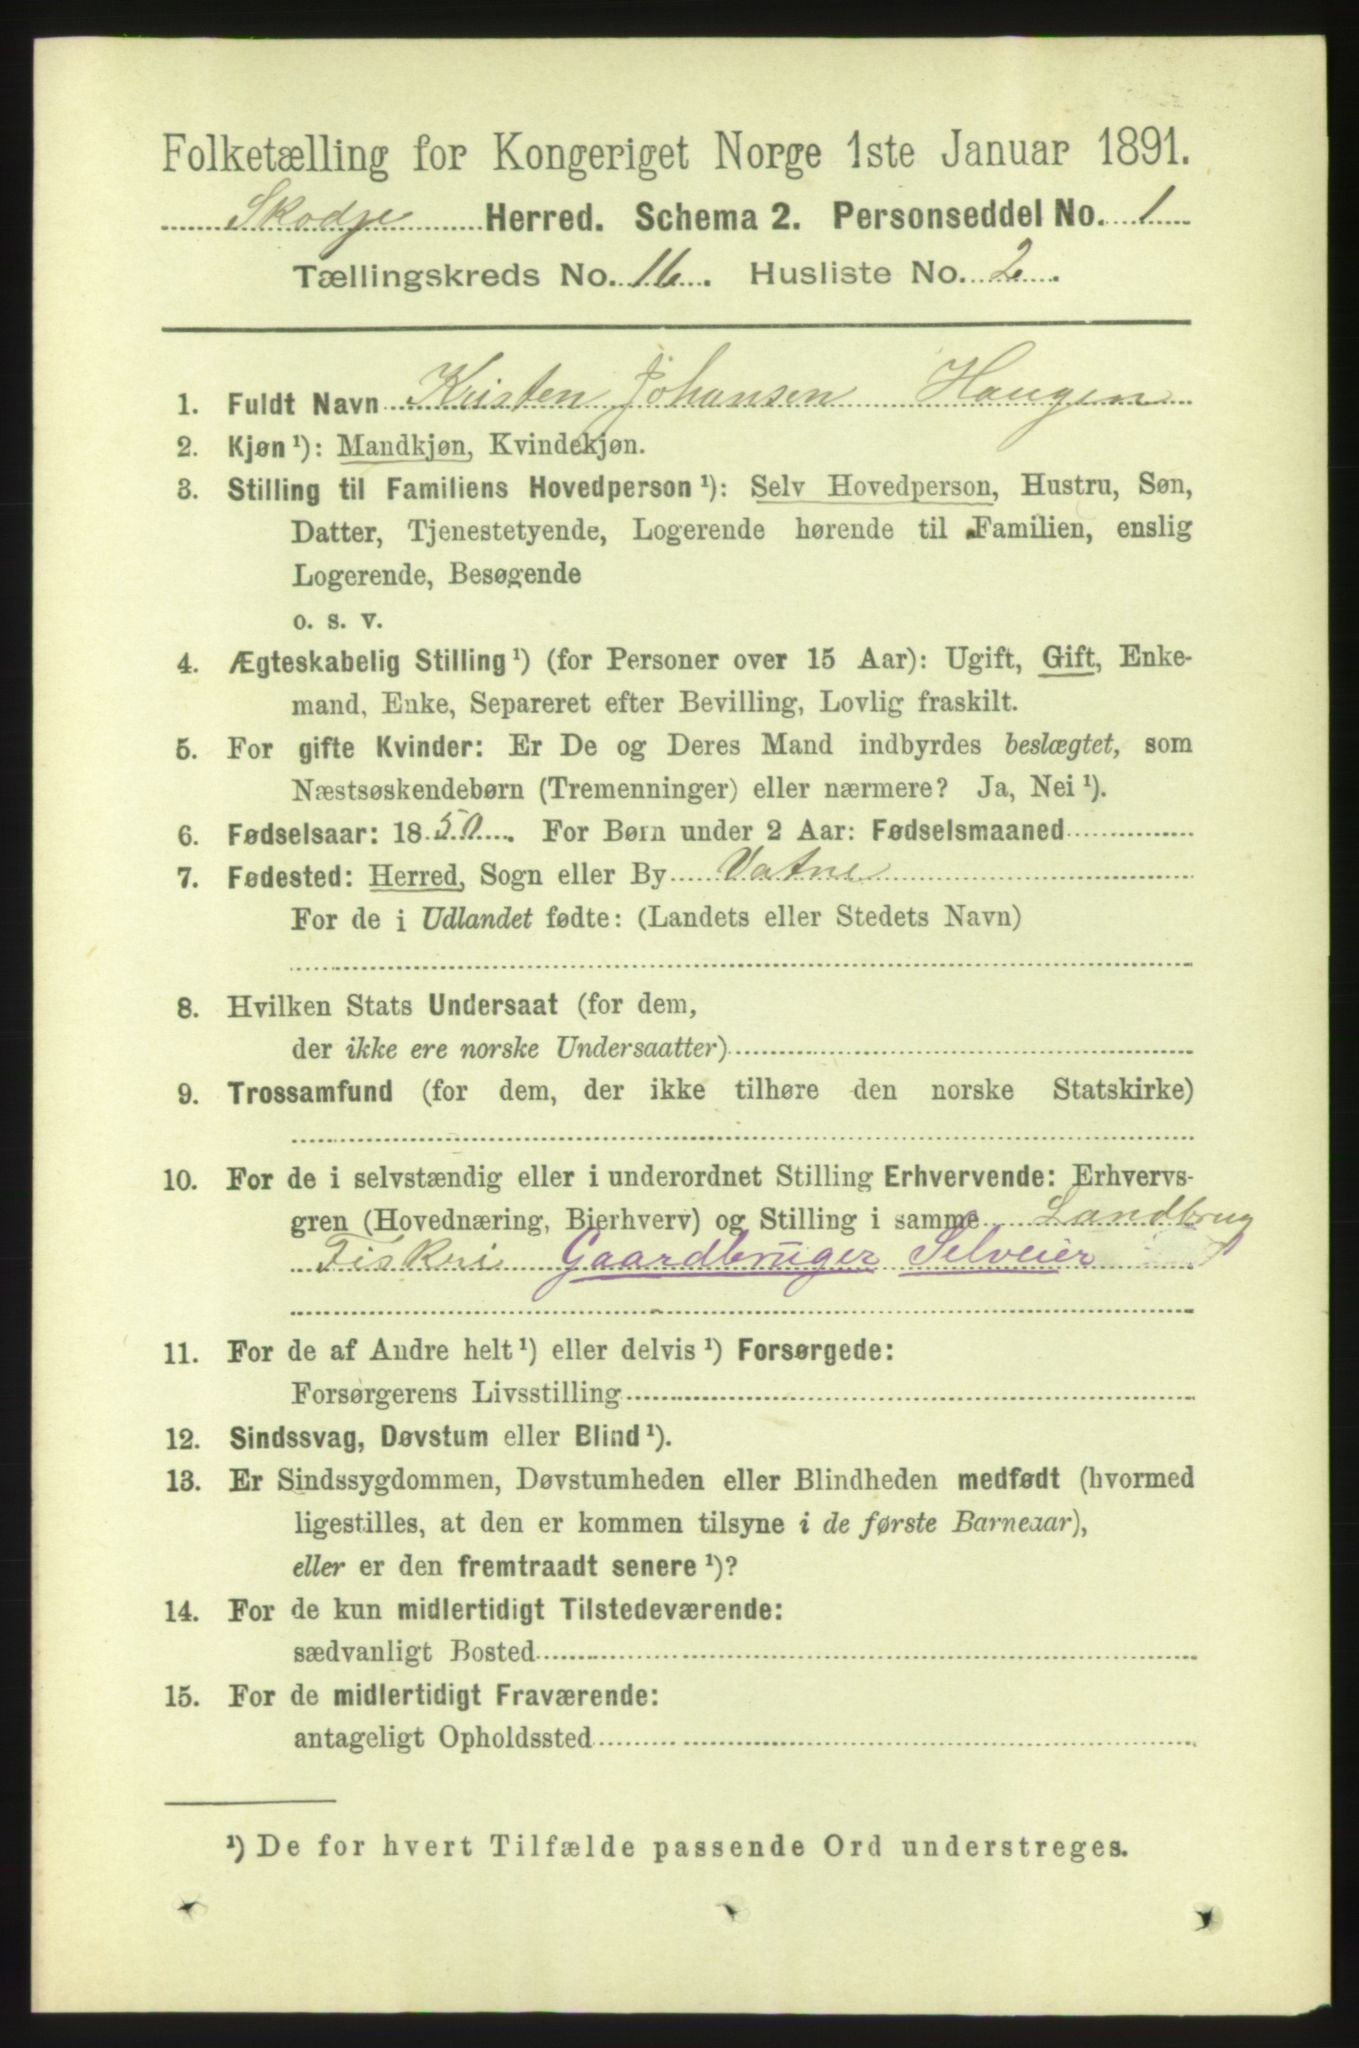 Folketælling for Kongeriget Norge 1ste Januar 1891.
Skodje Herred. Schema 2. Personseddel No. 1
Tællingskreds No. 16. Husliste No. 2.
1. Fuldt Navn Kristen Johansen Haugen
2. Kjøn¹): Mandkjøn, Kvindekjøn.
3. Stilling til Familiens Hovedperson¹): Selv Hovedperson, Hustru, Søn,
Datter, Tjenestetyende, Logerende hørende til Familien, enslig
Logerende, Besøgende
o. s. v.
4. Ægteskabelig Stilling¹) (for Personer over 15 Aar): Ugift, Gift, Enke-
mand, Enke, Separeret efter Bevilling, Lovlig fraskilt.
5. For gifte Kvinder: Er De og Deres Mand indbyrdes beslægtet, som
Næstsøskendebørn (Tremenninger) eller nærmere? Ja, Nei¹).
6. Fødselsaar: 1850. For Børn under 2 Aar: Fødselsmaaned
7. Fødested: Herred, Sogn eller By Vatne
For de i Udlandet fødte: (Landets eller Stedets Navn)
8. Hvilken Stats Undersaat (for dem,
der ikke ere norske Undersaatter)
9. Trossamfund (for dem, der ikke tilhøre den norske Statskirke)
10. For de i selvstændig eller i underordnet Stilling Erhvervende: Erhvervs-
gren (Hovednæring, Bierhverv) og Stilling i samme Landbrug
Fiskeri Gaardbruger Selveier
11. For de af Andre helt¹) eller delvis¹) Forsørgede:
Forsørgerens Livsstilling
12. Sindssvag, Døvstum eller Blind¹).
13. Er Sindssygdommen, Døvstumheden eller Blindheden medfødt (hvormed
ligestilles, at den er kommen tilsyne i de første Barneaar),
eller er den fremtraadt senere¹)?
14. For de kun midlertidigt Tilstedeværende:
sædvanligt Bosted
15. For de midlertidigt Fraværende:
antageligt Opholdssted
¹) De for hvert Tilfælde passende Ord understreges.